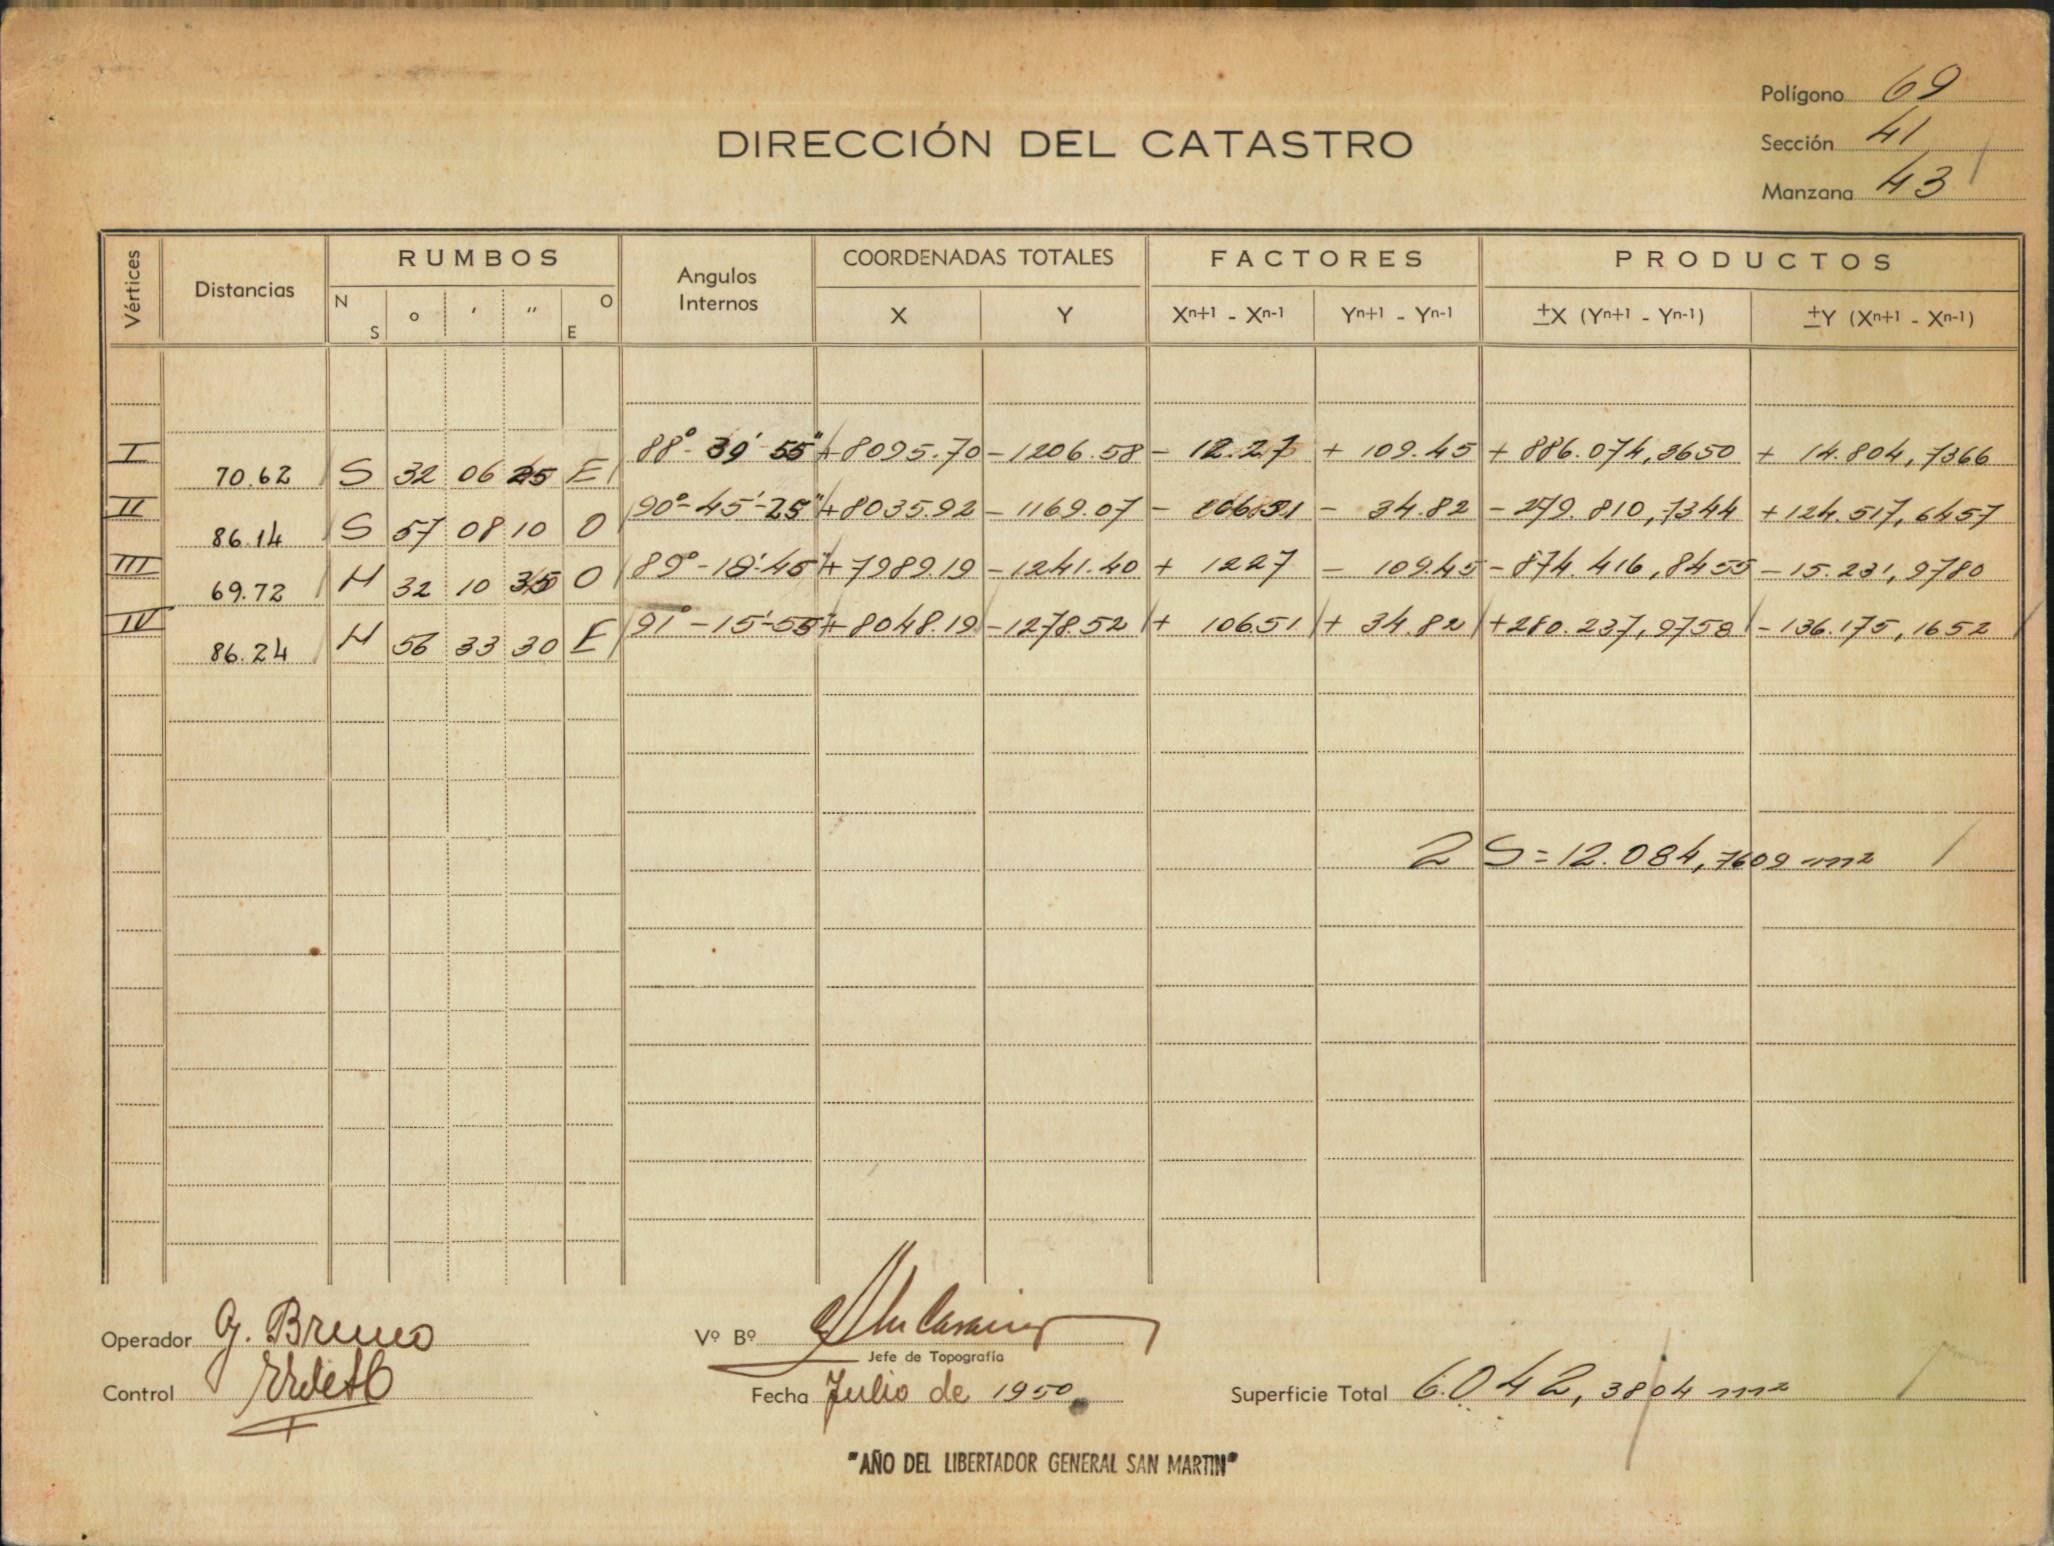 Polígono 69
DIRECCIÓN DEL CATASTRO
Sección 41
Manzana 43
Vértices Distancias RUMBOS Angulos Internos COORDENADAS TOTALES FACTORES PRODUCTOS
N S ° ' " O E X Y Xn+1 - Xn-1 Yn+1 - Yn-1 ±X (Yn+1 - Yn-1) ±Y (Xn+1 - Xn-1)
I 88°-39'-55" +8095.70 -1206.58 - 12.27 + 109.45 +886.074,3650 + 14.804,7366
70.62 S 32 06 25 E
II 90°-45'-25" +8035.92 -1169.07 - 106.51 - 34.82 -279.810,7344 +124.517,6457
86.14 S 57 08 10 O
III 89°-18'-45" +7989.19 -1241.40 + 1227 - 109.45 -874.416,8455 -15.231,9780
69.72 N 32 10 35 O
IV 91°-15'-55" +8048.19 -1278.52 + 106.51 + 34.82 +280.237,9758 -136.175,1652
86.24 N 56 33 30 E
2 S = 12.084,7609 m2
Operador G. Bruno
Vº Bº
Jefe de Topografía
Control
Fecha Julio de 1950
Superficie Total 6.042,3804 m2
"AÑO DEL LIBERTADOR GENERAL SAN MARTIN"